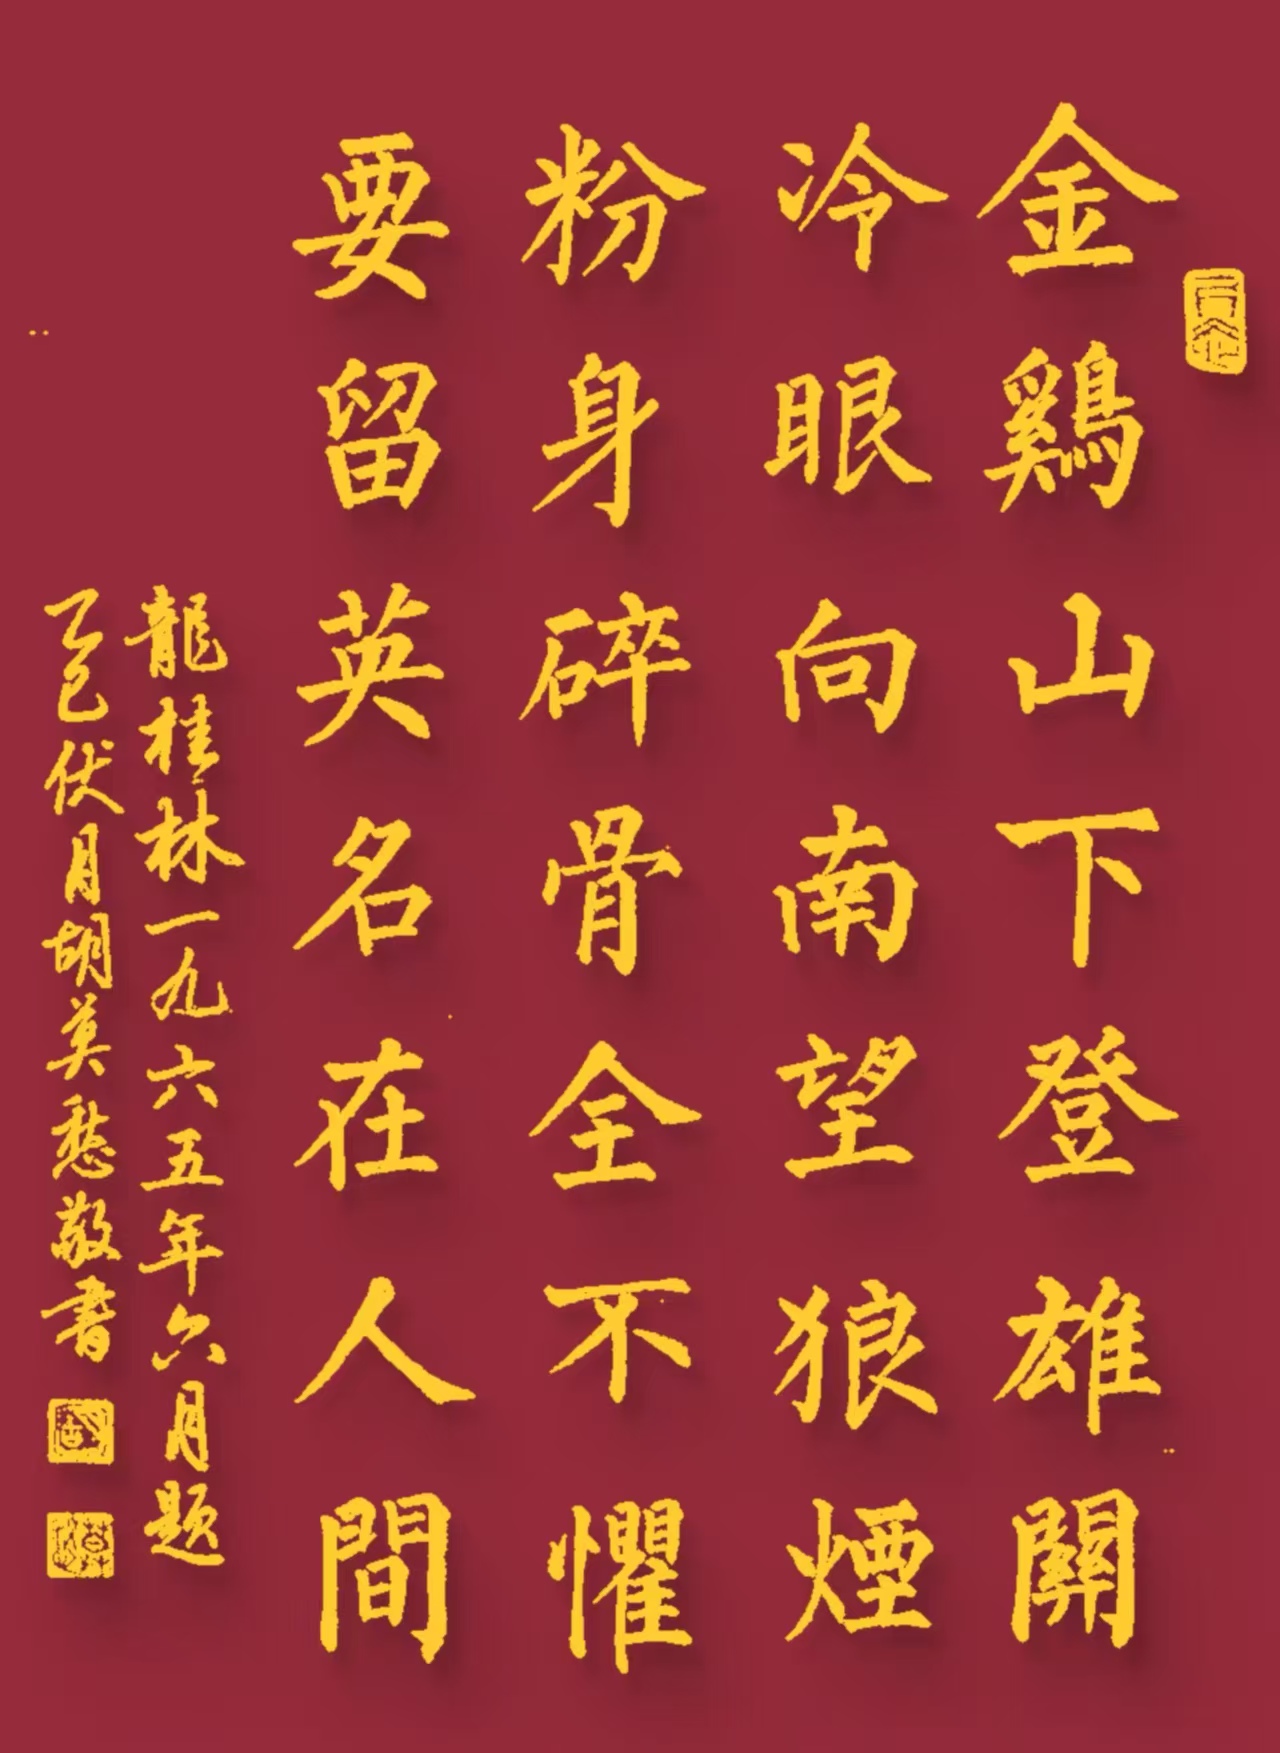 金鷄山下登雄關
冷眼向南望狼煙
粉身碎骨全不懼
要留英名在人間
龍桂林一九六五年六月題
乙巳伏月胡莫愁敬書